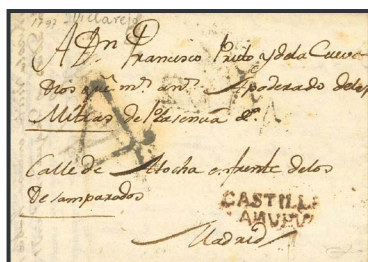 1797 Villarejo
A Dn Francisco Prieto y de la Cueva
Dios gue. ms. as. Apoderado de las
Mitras de Plasencia &.
Calle de Atocha en frente de los
Desamparados
CASTILLA
LA NUEVA
Madrid